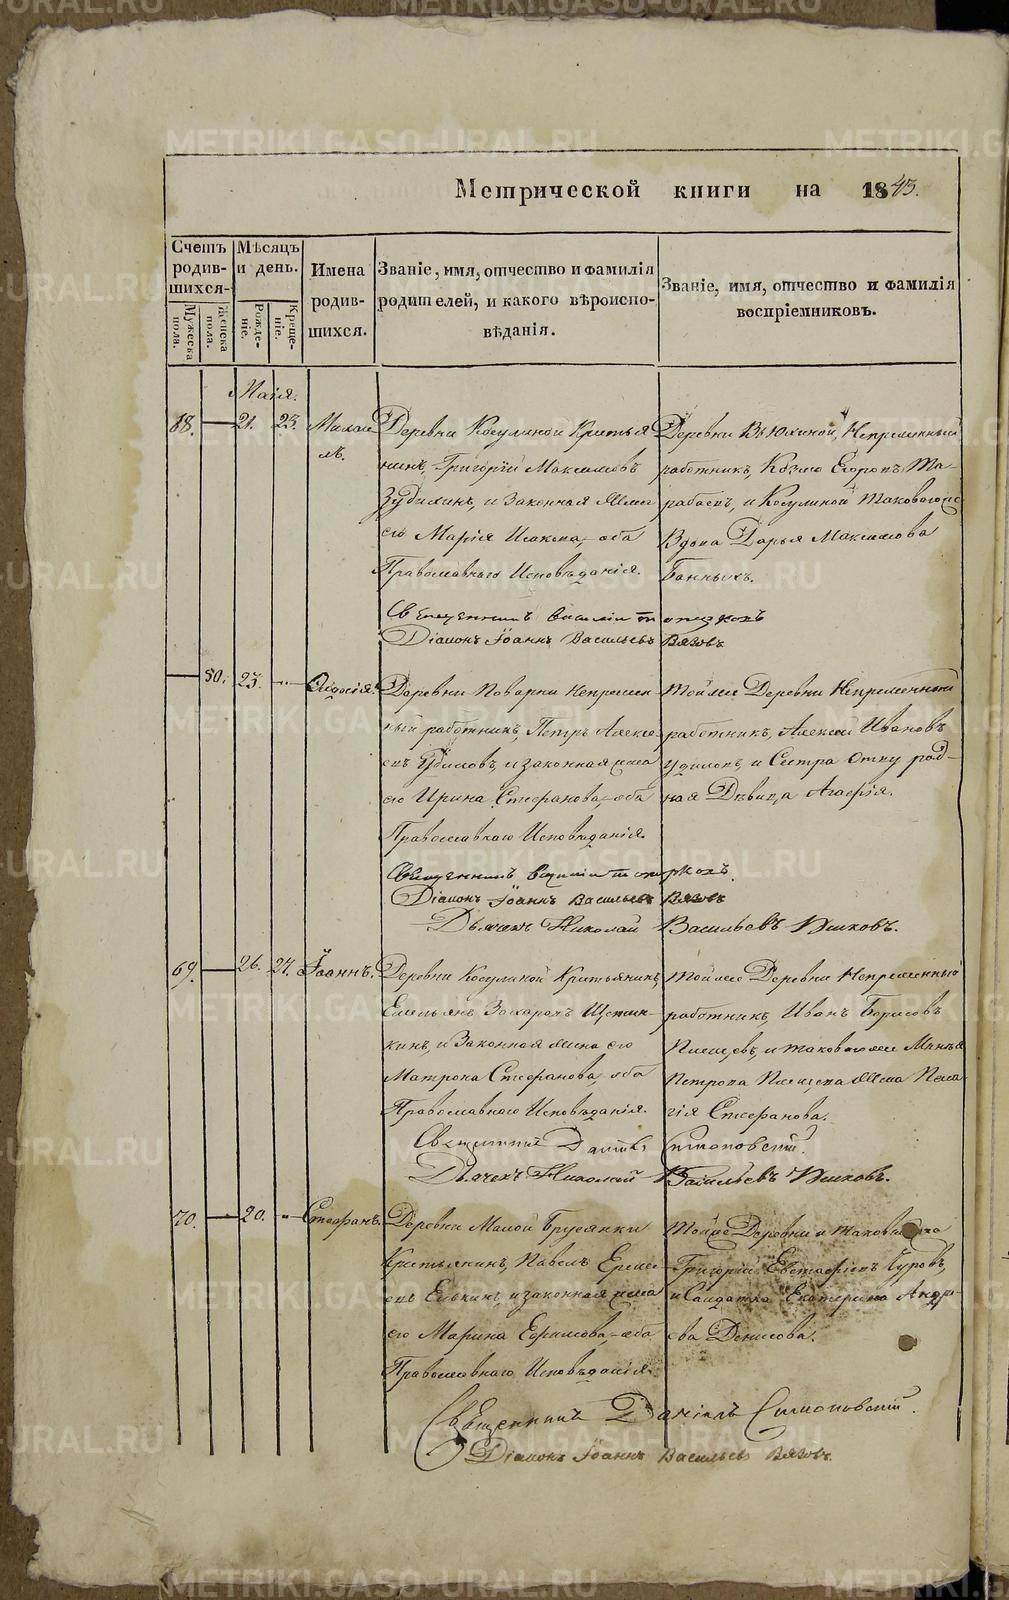 Метрической книги на 1843.
Счетъ родившихся.
Мѣсяцъ и день.
Имена родившихся.
Званіе, имя, отчество и фамилія родителей, и какого вѣроисповѣданія.
Званіе, имя, отчество и фамилія воспріемниковъ.
Мужеска пола.
Женска пола.
Рожденіе.
Крещеніе.
Маія.
68. 21. 23. Михаилъ.
Деревни Косулиной Крестьянинъ, Григорій Максимовъ
Зудихинъ, и Законная Жена
его Марія Исакова, оба
Православнаго Исповѣданія.
Деревни Вьюхиной, Непременный
работникъ, Козма Егоровъ
и Косулиной таковаго же
Вдова Дарья Максимова
Банныхъ.
Священникъ Василій Топорковъ
Діаконъ Іоаннъ Васильевъ Вязовъ
50. 23. Ѳедосія.
Деревни Поварни Непременный работникъ, Петръ Алексеевъ
и законная жена
его Ирина Стефанова, оба
Православнаго Исповѣданія.
Той же Деревни Непременный
работникъ, Алексей Ивановъ
и Сестра Отцу родная Дѣвица Агафія.
Священникъ Василій Топорковъ.
Діаконъ Іоаннъ Васильевъ Вязовъ
Дьячекъ Николай Васильевъ
69. 26. 27. Іоаннъ.
Деревни Косулиной Крестьянинъ,
Емельянъ Захаровъ Щетинкинъ, и Законная жена его
Матрона Стефанова, оба
Православнаго Исповѣданія.
Той же Деревни Непременный
работникъ, Иванъ Борисовъ
и таковаго же
Петрова жена Пелагія Стефанова.
Священникъ Даніилъ Симоновскій.
Дьячекъ Николай Васильевъ
70. 20. Стефанъ.
Деревни Малой Брусянки
Крестьянинъ, Павелъ Еремеевъ Елькинъ, и законная жена
его Марина Ефимова, оба
Православнаго Исповѣданія.
Той же Деревни и таковой же
Григорій Евстафіевъ Суровъ,
и Солдатка Екатерина Андреева Денисова.
Священникъ Даніилъ Симоновскій.
Діаконъ Іоаннъ Васильевъ Вязовъ.
METRIKI.GASO-URAL.RU